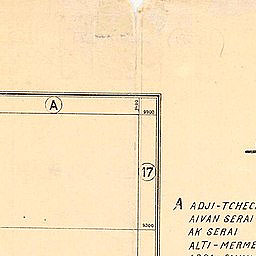 A
9300
17
9200
A ADJI-TCHEC
AIVAN SERAI
AK SERAI
ALTI-MERME